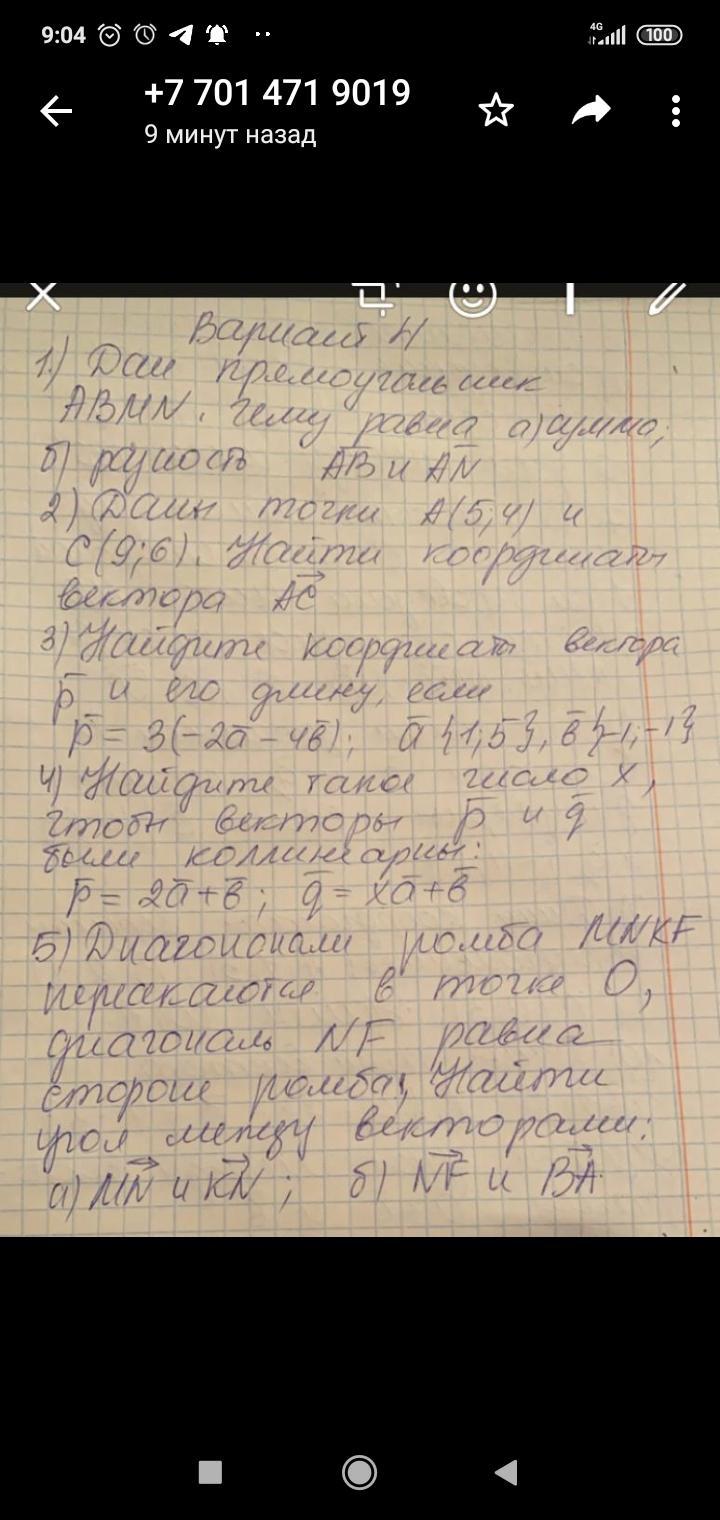 9:04
4G
100
+7 701 471 9019
9 минут назад
Вариант 4
1.) Дан прямоугольник
ABMN. Чему равна а) сумма;
б) разность AB и AN
2) Даны точки A(5;4) и
C(9;6). Найти координаты
вектора AC
3) Найдите координаты вектора
p и его длину, если
p = 3(-2a - 4b); a {1;5}, b {-1;-1}
4) Найдите такое число x,
чтобы векторы p и q
были коллинеарны:
p = 2a + b; q = xa + b
5) Диагонали ромба MNKF
пересекаются в точке O,
диагональ NF равна
стороне ромба. Найти
угол между векторами:
а) MN и KN; б) NF и BA